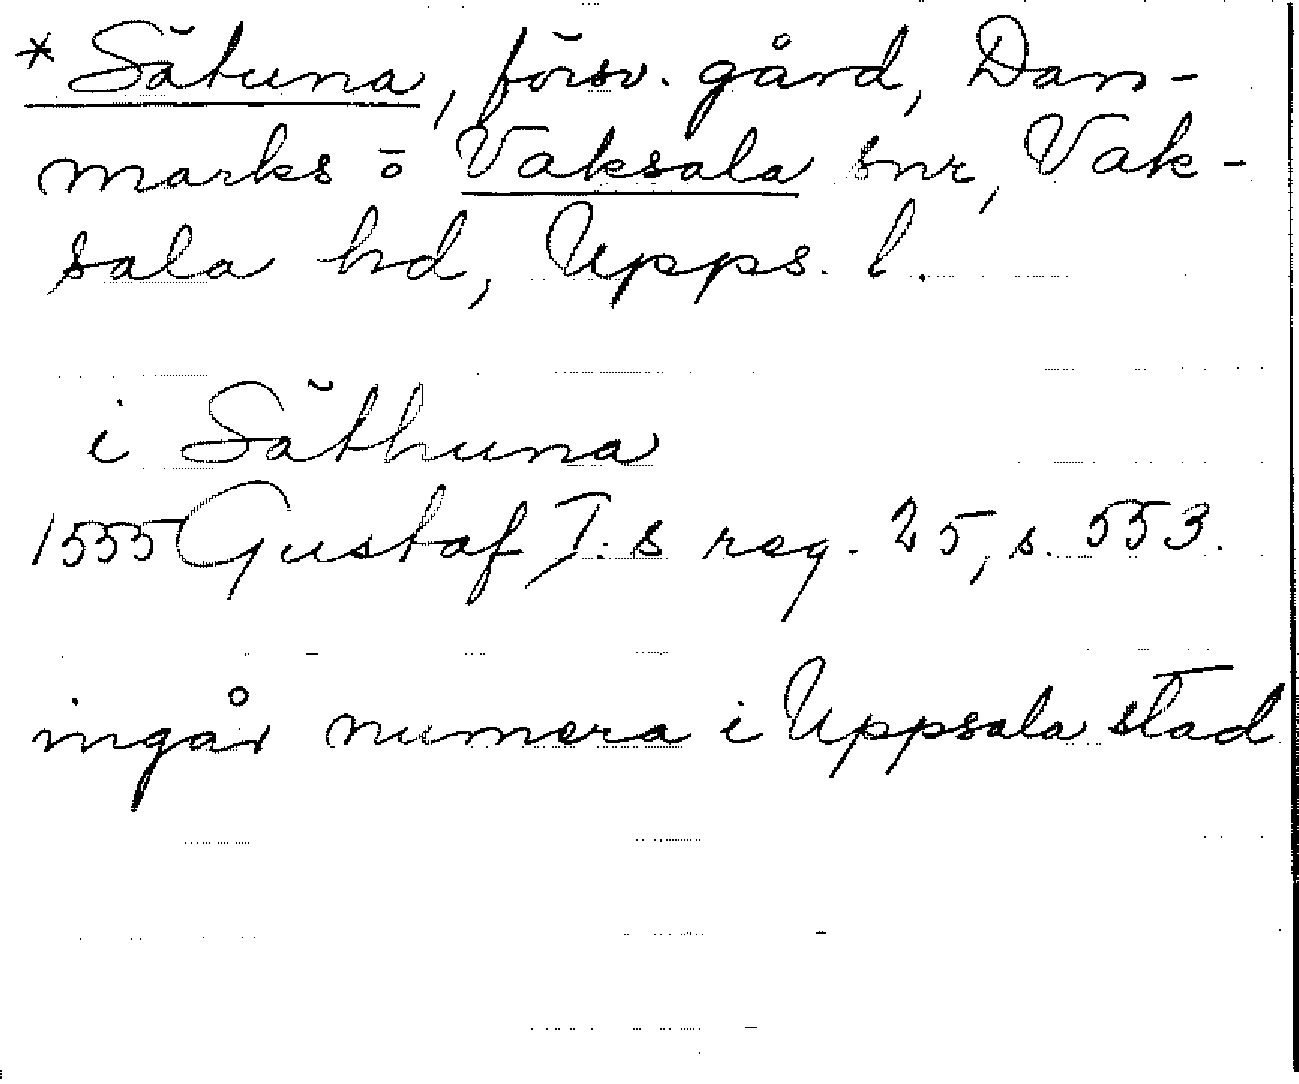 *Sätuna, försv. gård, Dan-
marks o Vaksala snr, Vak-
sala hd, Upps. l.
i Säthuna
1555 Gustaf I:s reg. 25, s. 553.
ingår numera i Uppsala stad